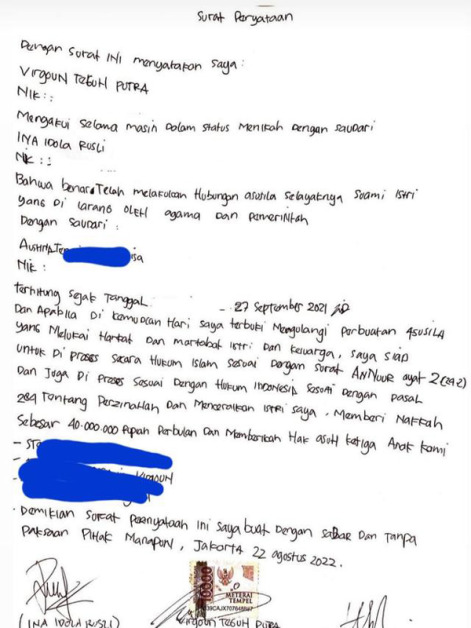 Surat Peryataan
Dengan Surat INI menyatakan saya :
VIRGOUN TEGUH PUTRA
NIK : :
Mengakui selama masih Dalam status Menikah Dengan saudari
INA IDOLA RUSLI
NIK : :
Bahwa benar Telah melakukan Hubungan asusila selayaknya Suami istri
yang Di larang oleh agama Dan pemerintah
Dengan saudari :
isa
NIK :
terhitung sejak tanggal - 27 September 2021
Dan Apabila Di kemudian Hari saya terbukti Mengulangi perbuatan ASUSILA
yang Melukai Harkat Dan Martabat istri Dan keluarga, saya siap
untuk Di proses secara Hukum Islam sesuai Dengan surat ANNUUR ayat 2 (24:2)
Dan Juga Di proses sesuai Dengan Hukum INDONESIA sesuai Dengan pasal
284 Tentang Perzinahan Dan Menceraikan istri saya, Memberi Nafkah
Sebesar 40.000.000 Rupiah Perbulan Dan Memberikan Hak asuh ketiga Anak kami
- Demikian Surat pernyataan Ini saya buat Dengan sadar Dan Tanpa
paksaan Pihak Manapun, Jakarta 22 agustus 2022.
10000
METERAI
TEMPEL
(INA IDOLA RUSLI) VIRGOUN TEGUH PUTRA